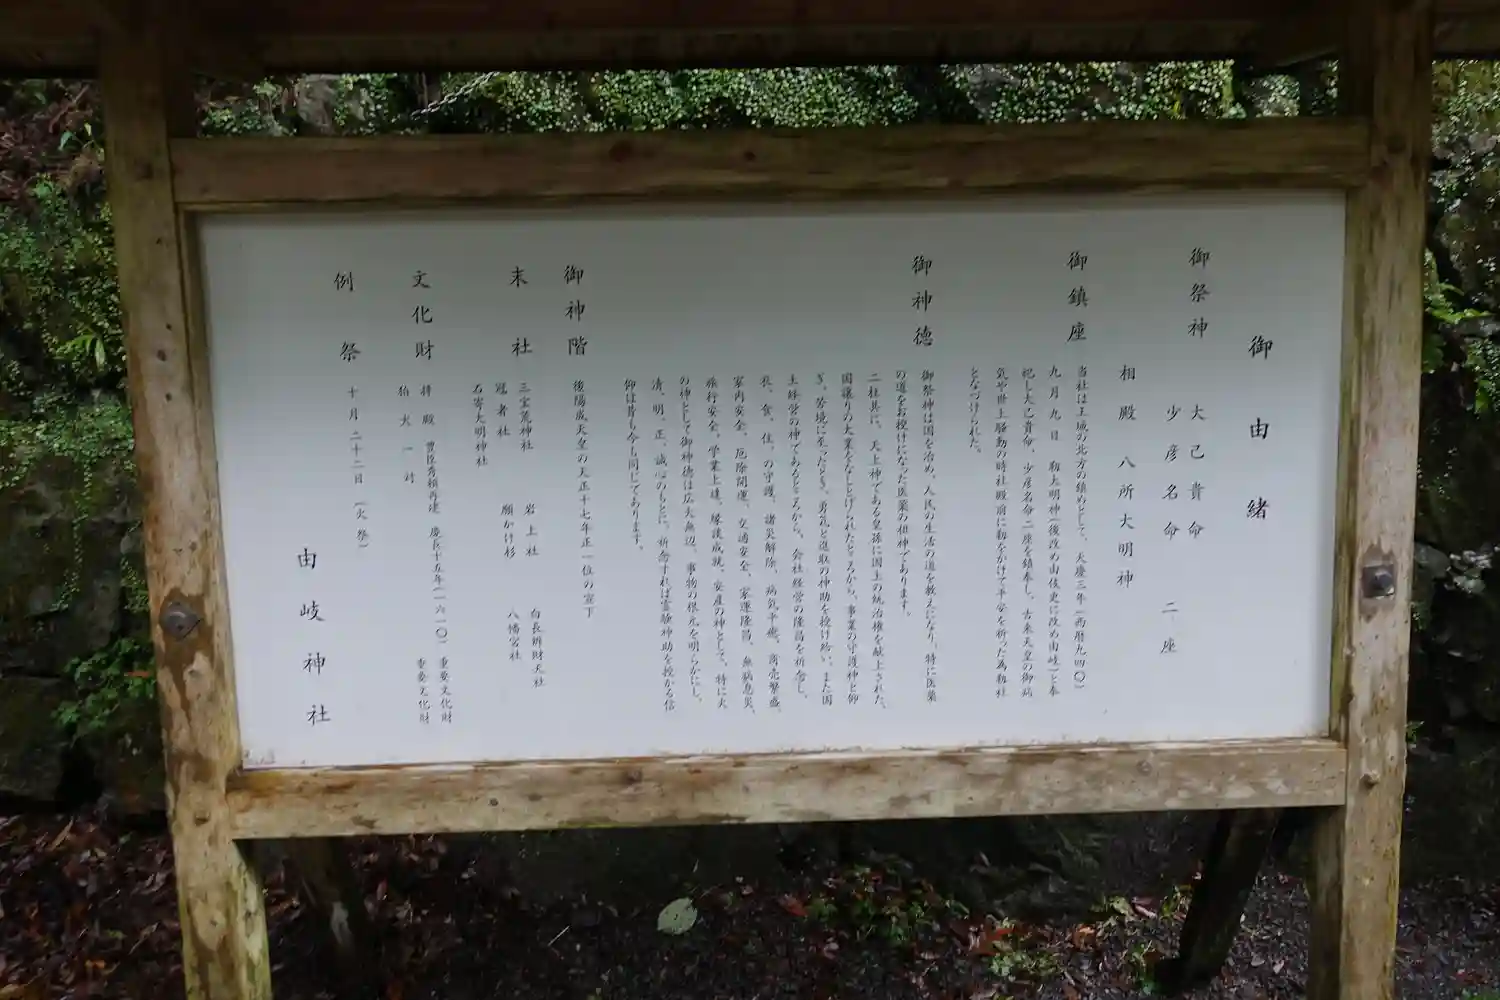 御由緒
御祭神
大己貴命
少彦名命 二座
相殿 八所大明神
御鎮座
当社は王城の北方の鎮めとして、天慶三年(西暦九四〇)
九月九日 靱大明神(後改め由伎更に改め由岐)と奉
祀し大己貴命、少彦名命二座を鎮奉し、古来天皇の御病
気や世上騒動の時社殿前に靱をかけて平安を祈った為靱社
となづけられた。
御神徳
御祭神は国を治め、人民の生活の道を教えになり、特に医薬
の道をお授けになった医薬の祖神であります。
二柱共に、天上神である皇孫に国土の統治権を献上された、
国譲りの大業をなしとげられたところから、事業の守護神と仰
ぎ、苦境に至ったとき、勇気と進取の神助を授け給い、また国
土経営の神であるところから、会社経営の隆昌を祈念し、
衣、食、住、の守護、諸災解除、病気平癒、商売繁盛、
家内安全、厄除開運、交通安全、家運隆昌、無病息災、
旅行安全、学業上達、縁談成就、安産の神として、特に火
の神として御神徳は広大無辺、事物の根元を明らかにし、
清、明、正、誠心のもとに、祈念すれば霊験神助を授かる信
仰は昔も今も同じであります。
御神階
後陽成天皇の天正十七年正一位の宣下
末社
三宝荒神社 岩上社 白長弁財天社
冠者社 願かけ杉 八幡宮社
石寄大明神社
文化財
拝殿 豊臣秀頼再建 慶長十五年(一六一〇) 重要文化財
狛犬一対 重要文化財
例祭
十月二十二日 (火祭)
由岐神社